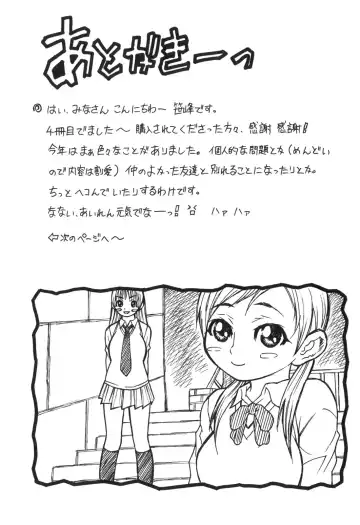 あとがきーっ
◎はい、みなさん こんにちわー 笹峰です。
4冊目でました〜 購入されてくださった方々、感謝 感謝!
今年はまぁ色々なことがありました。個人的な問題とか(めんどい
ので内容は割愛)仲のよかった友達と別れることになったりとか。
ちっとヘコんでいたりするわけです。
なない、あいれん元気でなーっ! ハァ ハァ
⇦次のページへ〜